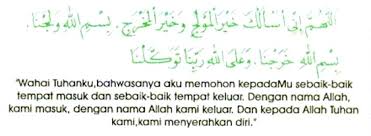 اَللّٰهُمَّ اِنِّى اَسْأَلُكَ خَيْرَ الْمَوْلِجِ وَخَيْرَ الْمَخْرَجِ. بِسْمِ اللهِ وَلَجْنَا.
بِسْمِ اللهِ خَرَجْنَا. وَعَلَى اللهِ رَبِّنَا تَوَكَّلْنَا
"Wahai Tuhanku,bahwasanya aku memohon kepadaMu sebaik-baik
tempat masuk dan sebaik-baik tempat keluar. Dengan nama Allah,
kami masuk, dengan nama Allah kami keluar. Dan kepada Allah Tuhan
kami,kami menyerahkan diri."